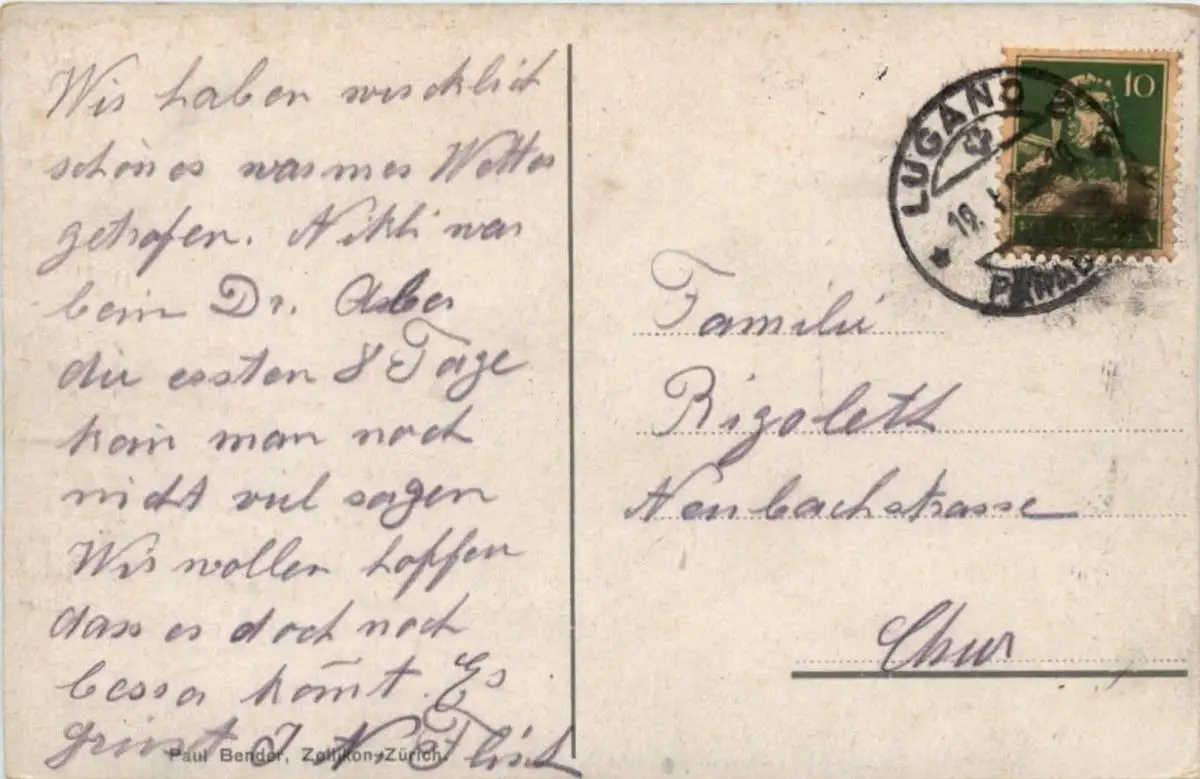 Wir haben wircklich
schönes warmes Wetter
getrofen. Nikli war
beim Dr.
die ersten 8 Tage
kan man noch
nicht viel sagen
Wir wollen hoffen
dass es doch noch
besser kom̄t. Es
grüst J. N. Flisch
Paul Bender, Zollikon-Zürich.
LUGANO
10
Familie
Rigolett
Neubachstrasse
Chur